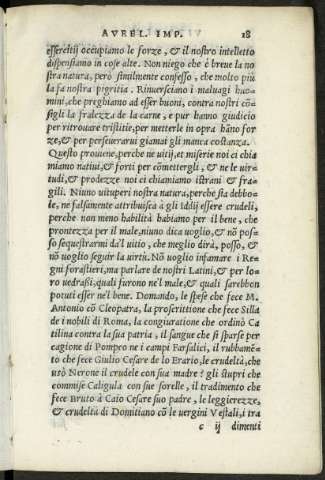 AVREL. IMP. 18
essercitij occupiamo le forze, & il nostro intelletto
dispensiamo in cose alte. Non niego che è breue la no
stra natura, però similmente confesso, che molto più
la fa nostra pigritia. Riuersciamo i maluagi huo-
mini, che preghiamo ad esser buoni, contra nostri cõ-
sigli la fralezza de la carne, e pur hanno giudicio
per ritrouare tristitie, per metterle in opra hãno for
ze, & per perseuerarui giamai gli manca costanza.
Questo prouiene, perche ne uitij, et miserie noi ci chia
miamo natiui, & forti per cõmettergli, & ne le uir-
tudi, & prodezze noi ci chiamiamo istrani & fra-
gili. Niuno uituperi nostra natura, perche sia debbo-
le, ne falsamente attribuisca à gli Iddij essere crudeli,
perche non meno habilità habbiamo per il bene, che
prontezza per il male, niuno dica uoglio, & nõ pos-
so sequestrarmi da'l uitio, che meglio dirà, posso, &
nõ uoglio seguir la uirtù. Nõ uoglio infamare i Re-
gni forastieri, ma parlare de nostri Latini, & per lo-
ro uedrassi, quali furono ne'l male, & quali sarebbon
potuti esser ne'l bene. Domando, le spese che fece M.
Antonio cõ Cleopatra, la proscrittione che fece Silla
de i nobili di Roma, la congiuratione che ordinò Ca
tilina contra la sua patria, il sangue che si sparse per
cagione di Pompeo ne i campi Farsalici, il rubbamẽ-
to che fece Giulio Cesare de lo Erario, le crudeltà, che
usò Nerone il crudele con sua madre, gli stupri che
commise Caligula con sue sorelle, il tradimento che
fece Bruto à Caio Cesare suo padre, le leggierezze,
& crudeltà di Domitiano cõ le uergini Vestali, i tra
c ij dimenti